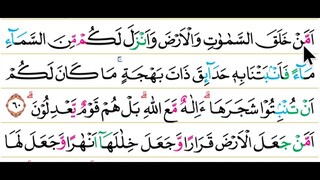 اَمَّنْ خَلَقَ السَّمٰوٰتِ وَالْاَرْضَ وَاَنْزَلَ لَكُمْ مِّنَ السَّمَآءِ
مَآءً ۚ فَاَنْۢبَتْنَا بِهٖ حَدَآئِقَ ذَاتَ بَهْجَةٍ ۚ مَا كَانَ لَكُمْ
اَنْ تُنْۢبِتُوْا شَجَرَهَا ؕ ءَاِلٰهٌ مَّعَ اللّٰهِ ؕ بَلْ هُمْ قَوْمٌ يَّعْدِلُوْنَ ؕ ۝۶۰
اَمَّنْ جَعَلَ الْاَرْضَ قَرَارًا وَّجَعَلَ خِلٰلَهَاۤ اَنْهٰرًا وَّجَعَلَ لَهَا